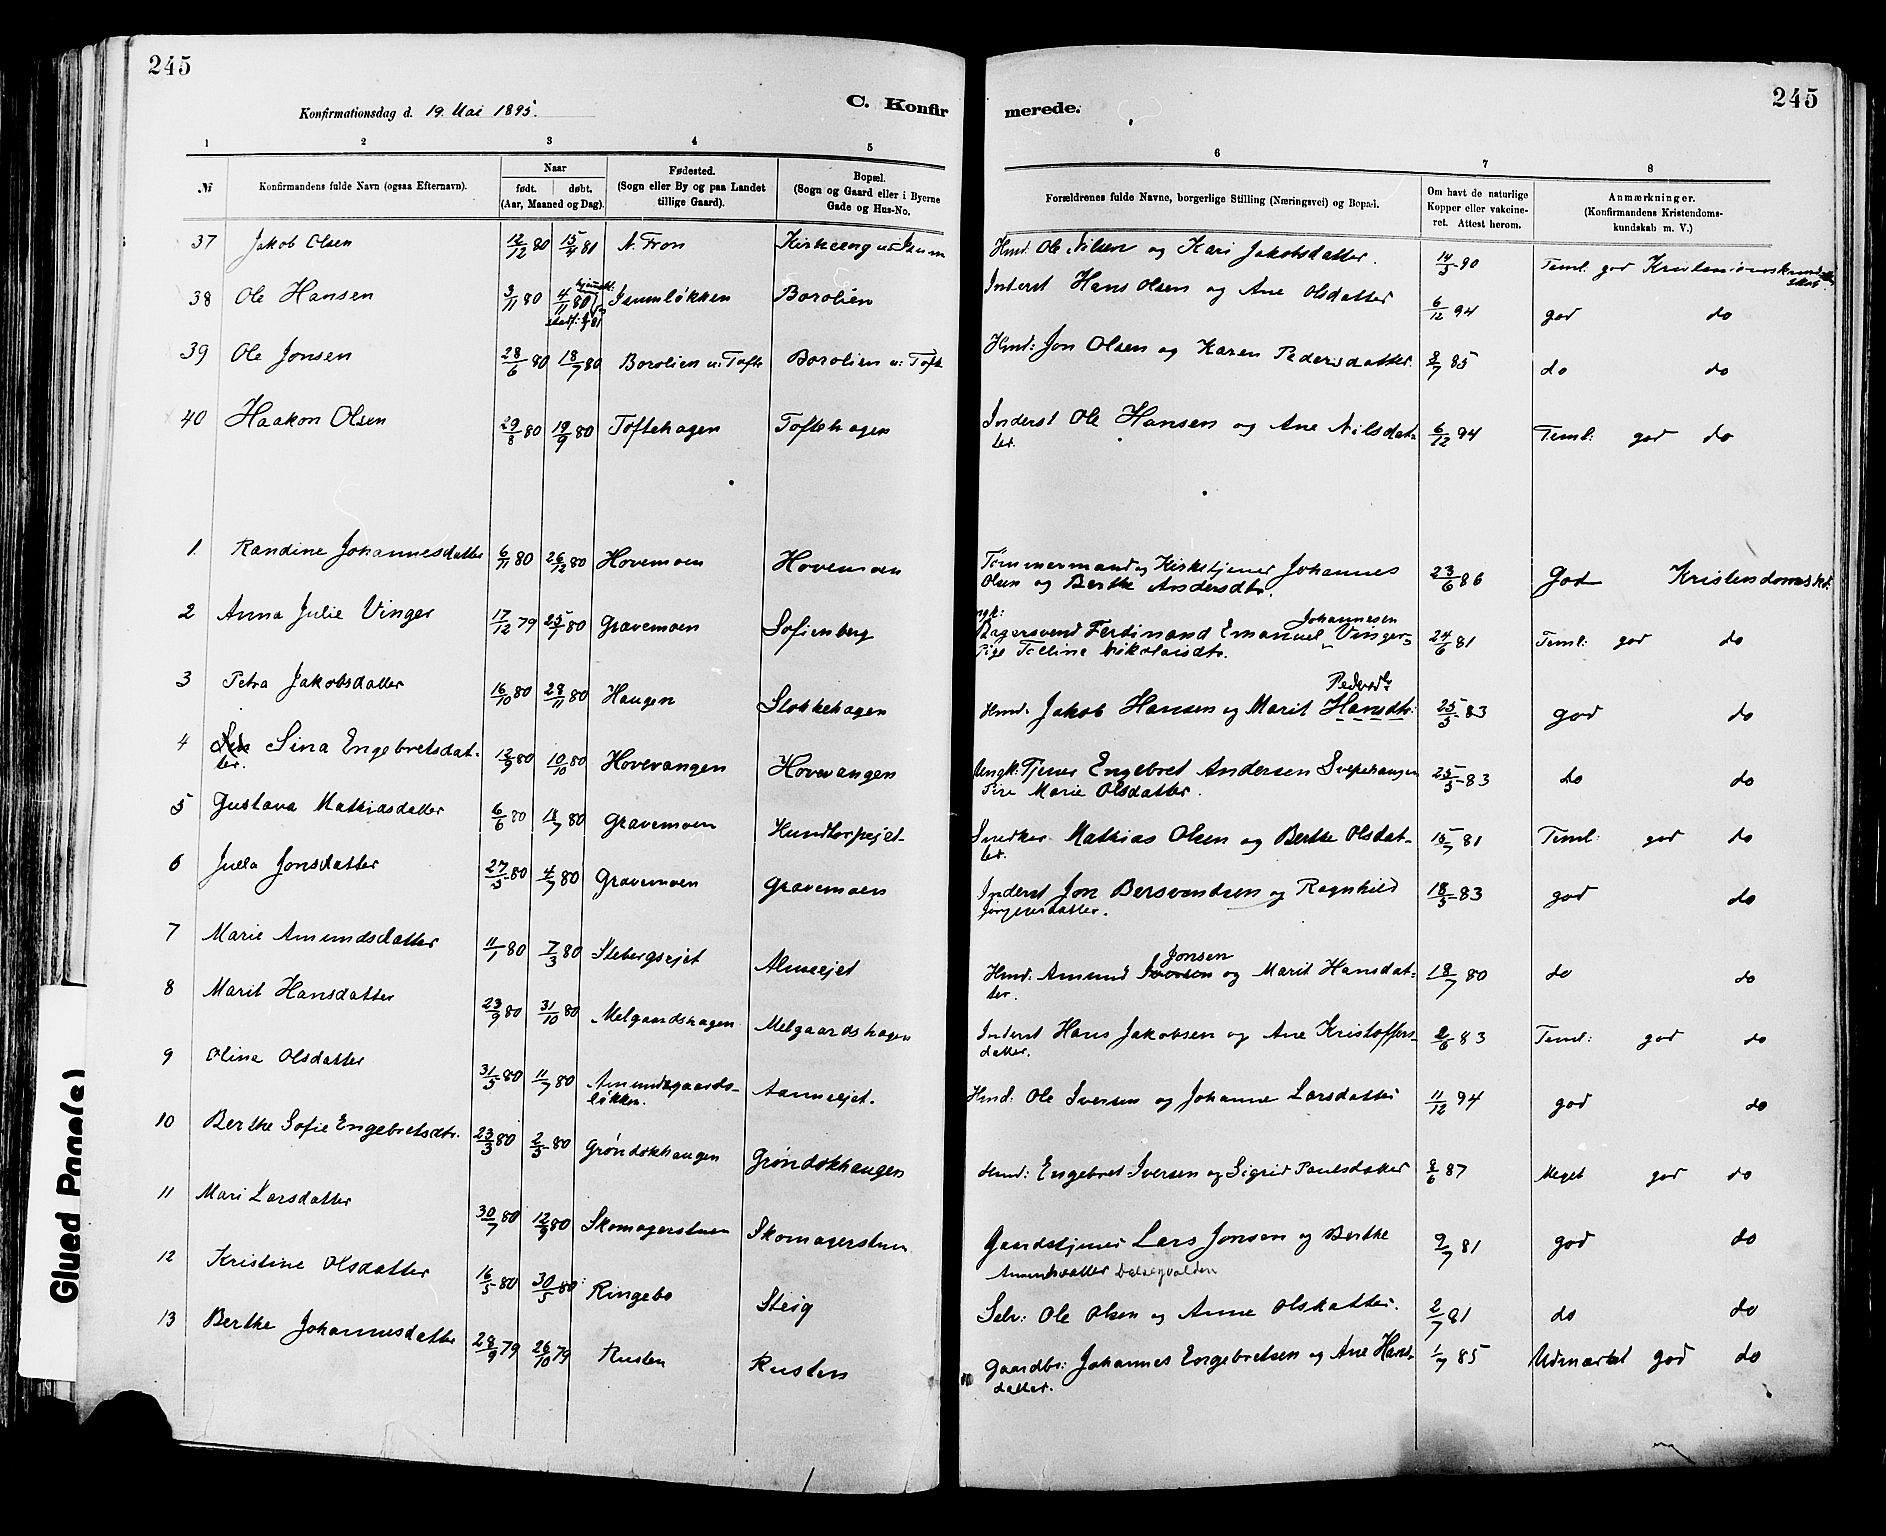 245
245
Konfirmationsdag d. 19. Mai 1895.
C. Konfir
merede.
1 2 3 4 5 6 7 8
№
Konfirmandens fulde Navn (ogsaa Efternavn).
Naar
født. døbt.
(Aar, Maaned og Dag).
Fødested.
(Sogn eller By og paa Landet
tillige Gaard).
Bopæl.
(Sogn og Gaard eller i Byerne
Gade og Hus-No.
Forældrenes fulde Navne, borgerlige Stilling (Næringsvei) og Bopæl.
Om havt de naturlige
Kopper eller vakcine-
ret. Attest herom.
Anmærkninger.
(Konfirmandens Kristendoms-
kundskab m. V.)
37 Jakob Olsen 12/12 80 15/4 81 N. Fron Kirkeeng u: Hmd: Ole Nilsen og Kari Jakobsdatter. 14/5 90 Teml. god Kristendomskundskab
38 Ole Hansen 3/11 80 4/11 80 hjemdt. stadf: 81 Isumløkken Borolien Inderst Hans Olsen og Ane Olsdatter 6/12 94 god do
39 Ole Jonsen 28/6 80 18/7 80 Borolien u: Tofte Borolien u: Toft Hmd: Jon Olsen og Karen Pedersdatter. 8/7 85 do do
40 Haakon Olsen 29/8 80 19/9 80 Toftehagen Toftehagen Inderst Ole Hansen og Ane Nilsdat-
ter. 6/12 94 Teml: god do
1. Randine Johannesdatter 6/11 80 26/12 80 Hovemoen Hovemoen Tømmermand og Kirketjener Johannes
Olsen og Berthe Andersdtr. 23/6 86 God Kristendomskd.
2 Anna Julie Vinger 17/12 79 25/1 80 Gravemoen Sofienberg ngk: Johannesen
Bagersvend Ferdinand Emanuel Vinger-
Pige Nikolaisdtr. 24/6 81 Teml: god do
3 Petra Jakobsdatter 16/10 80 28/11 80 Haugen Stokkehagen Pedersdtr
Hmd: Jakob Hansen og Marit Hansdtr: 25/5 83 god do
4 Sina Engebretsdat-
ter. 12/9 80 10/10 80 Hovevangen Hovevangen Ungk: Tjener Engebret Andersen Svepehaugen
Pige Marie Olsdatter. 25/5 83 do do
5 Gustava Mathiasdatter 6/6 80 18/7 80 Gravemoen Hundtorpejet Snedker Mathias Olsen og Berthe Olsdat-
ter. 15/7 81 Teml: god do
6 Julla Jonsdatter 27/5 80 4/7 80 Gravemoen Gravemoen Inderst Jon Bersvendsen og Ragnhild
Jørgensdatter. 18/5 83 god do
7 Marie Amundsdatter 11/1 80 7/3 80 Stebergsejet Almeejet Jonsen
Hmd: Amund Iversen og Marit Hansdat-
ter. 18/7 80 do do
8 Marit Hansdatter 23/9 80 31/10 80 Melgaardshagen Melgaardshagen Inderst Hans Jakobsen og Ane Kristoffers-
datter. 2/6 83 Teml: god do
9 Olina Olsdatter 31/5 80 11/7 80 Amundsgaards-
løkken. Aanneejet. Hmd: Ole Iversen og Johanne Larsdatter 11/12 94 god do
10 Berthe Sofie Engebretsdtr. 23/3 80 2/5 80 Grøndokhaugen Grøndokhaugen Hmd: Engebret Iversen og Sigrid Paulsdatter 8/6 87 Meget god do
11 Mari Larsdatter 30/7 80 12/9 80 Skomagerstuen Skomagerstuen Gaardstjener Lars Jonsen og Berthe
Amundsdatter 9/7 81 god do
12 Kristine Olsdatter 16/5 80 30/5 80 Ringebo Steig Selv: Ole Olsen og Anne Olsdatter. 2/7 81 do do
13 Berthe Johannesdatter 28/9 79 26/10 79 Rusten Rusten Gaardbr: Johannes Engebretsen og Ane Hans-
datter. 1/7 85 Udmærket god do
Glued Page(s)